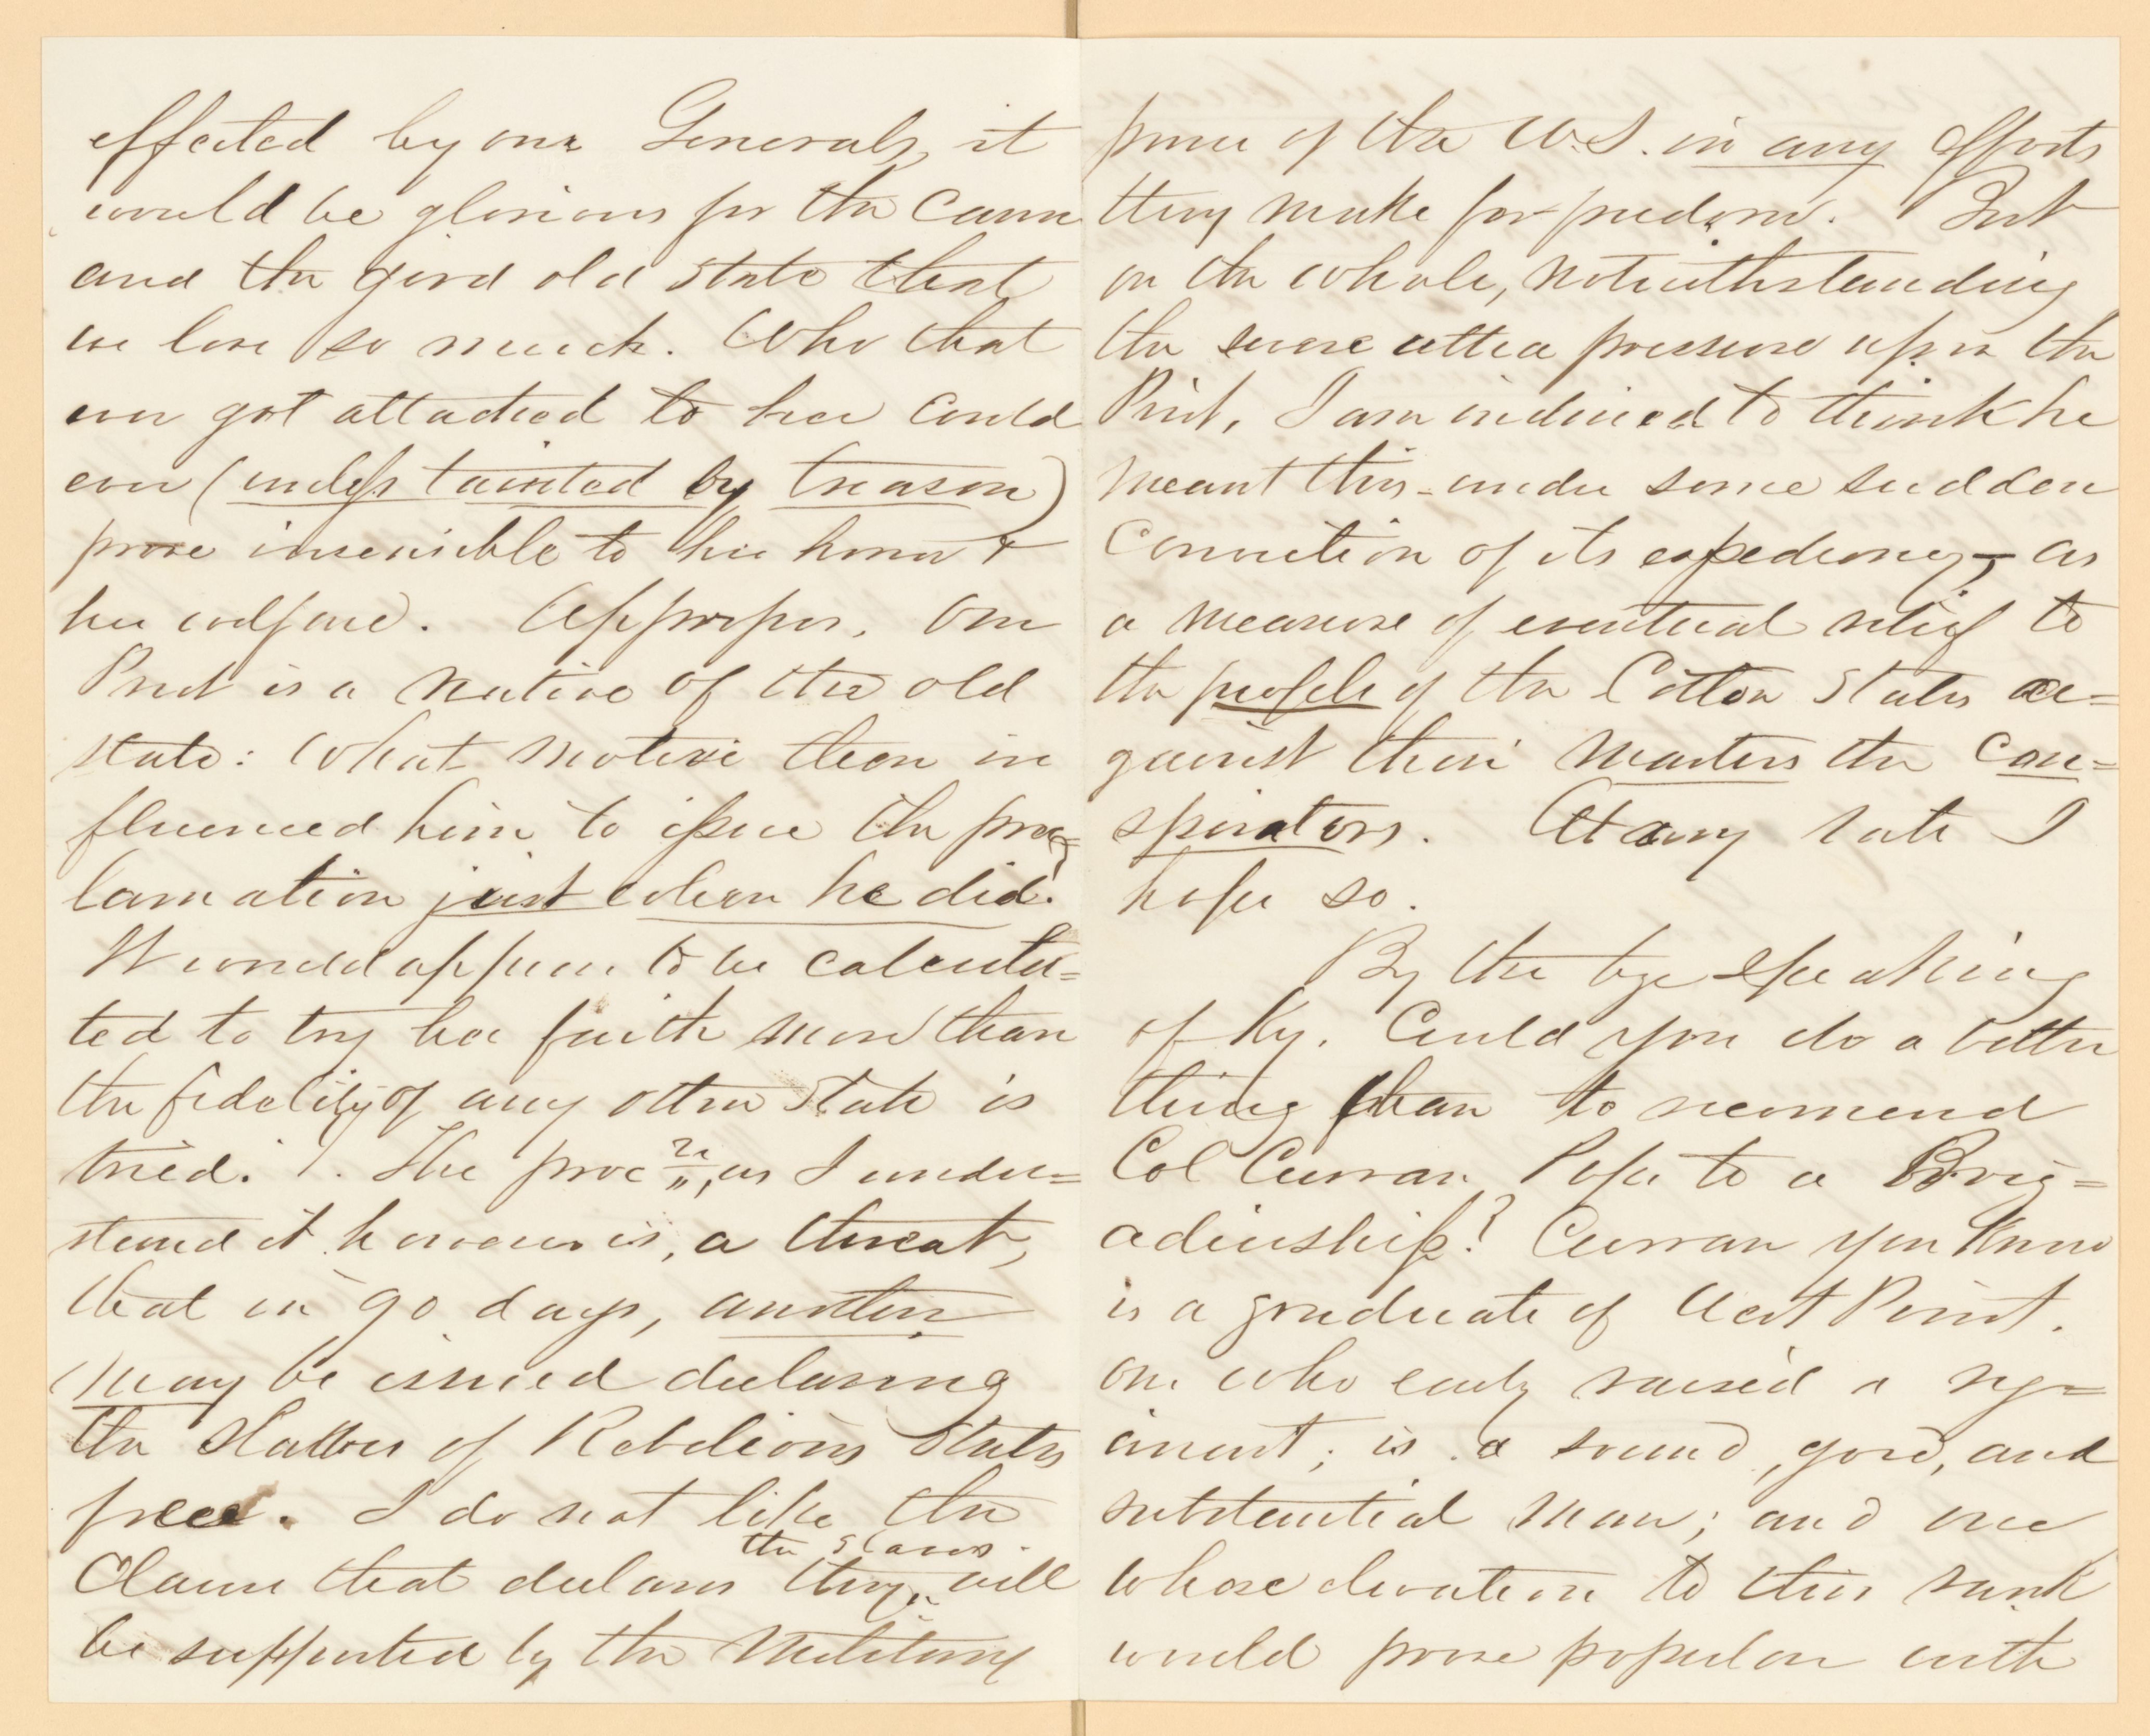 effected by our Generals, it
would be glorious for the cause
and the good old state that
we love so much. Who that
ever got attached to her could
ever (unless tainted by treason)
prove insensible to her honor &
her welfare. Appropos, Our
Prest is a native of the old
state: What motive then in
fluenced him to issue the proc=
lamation just when he did?
It would appear to be calcula=
ted to try her faith more than
the fidelity of any other State is
tried. The proc n, as I under=
stand it however is, a threat,
that in 90 days, another
may be issued declaring
the slaves of Rebelious States
free. I do not like the
the slaves.
Clause that declares they will
be supported by the Military
power of the U.S. in any efforts
they make for freedom. But
on the whole, notwithstanding
the severe ultra pressure upon the
Prest, I am inclined to think he
meant this - under some sudden
Conviction of its expediency, - as
a measure of eventual relief to
the people of the Cotton States a=
gainst their Masters the con=
spirators. At any rate I
hope so.
By the bye speaking
of Ky. Could you do a better
thing than to recomend
Col Curran Pope to a Brig=
adiership? Curran you know
is a graduate of West Point.
one who early raised a reg=
iment; is a sound, good, and
substantial man; and one
whose elevation to this rank
would prove popular with